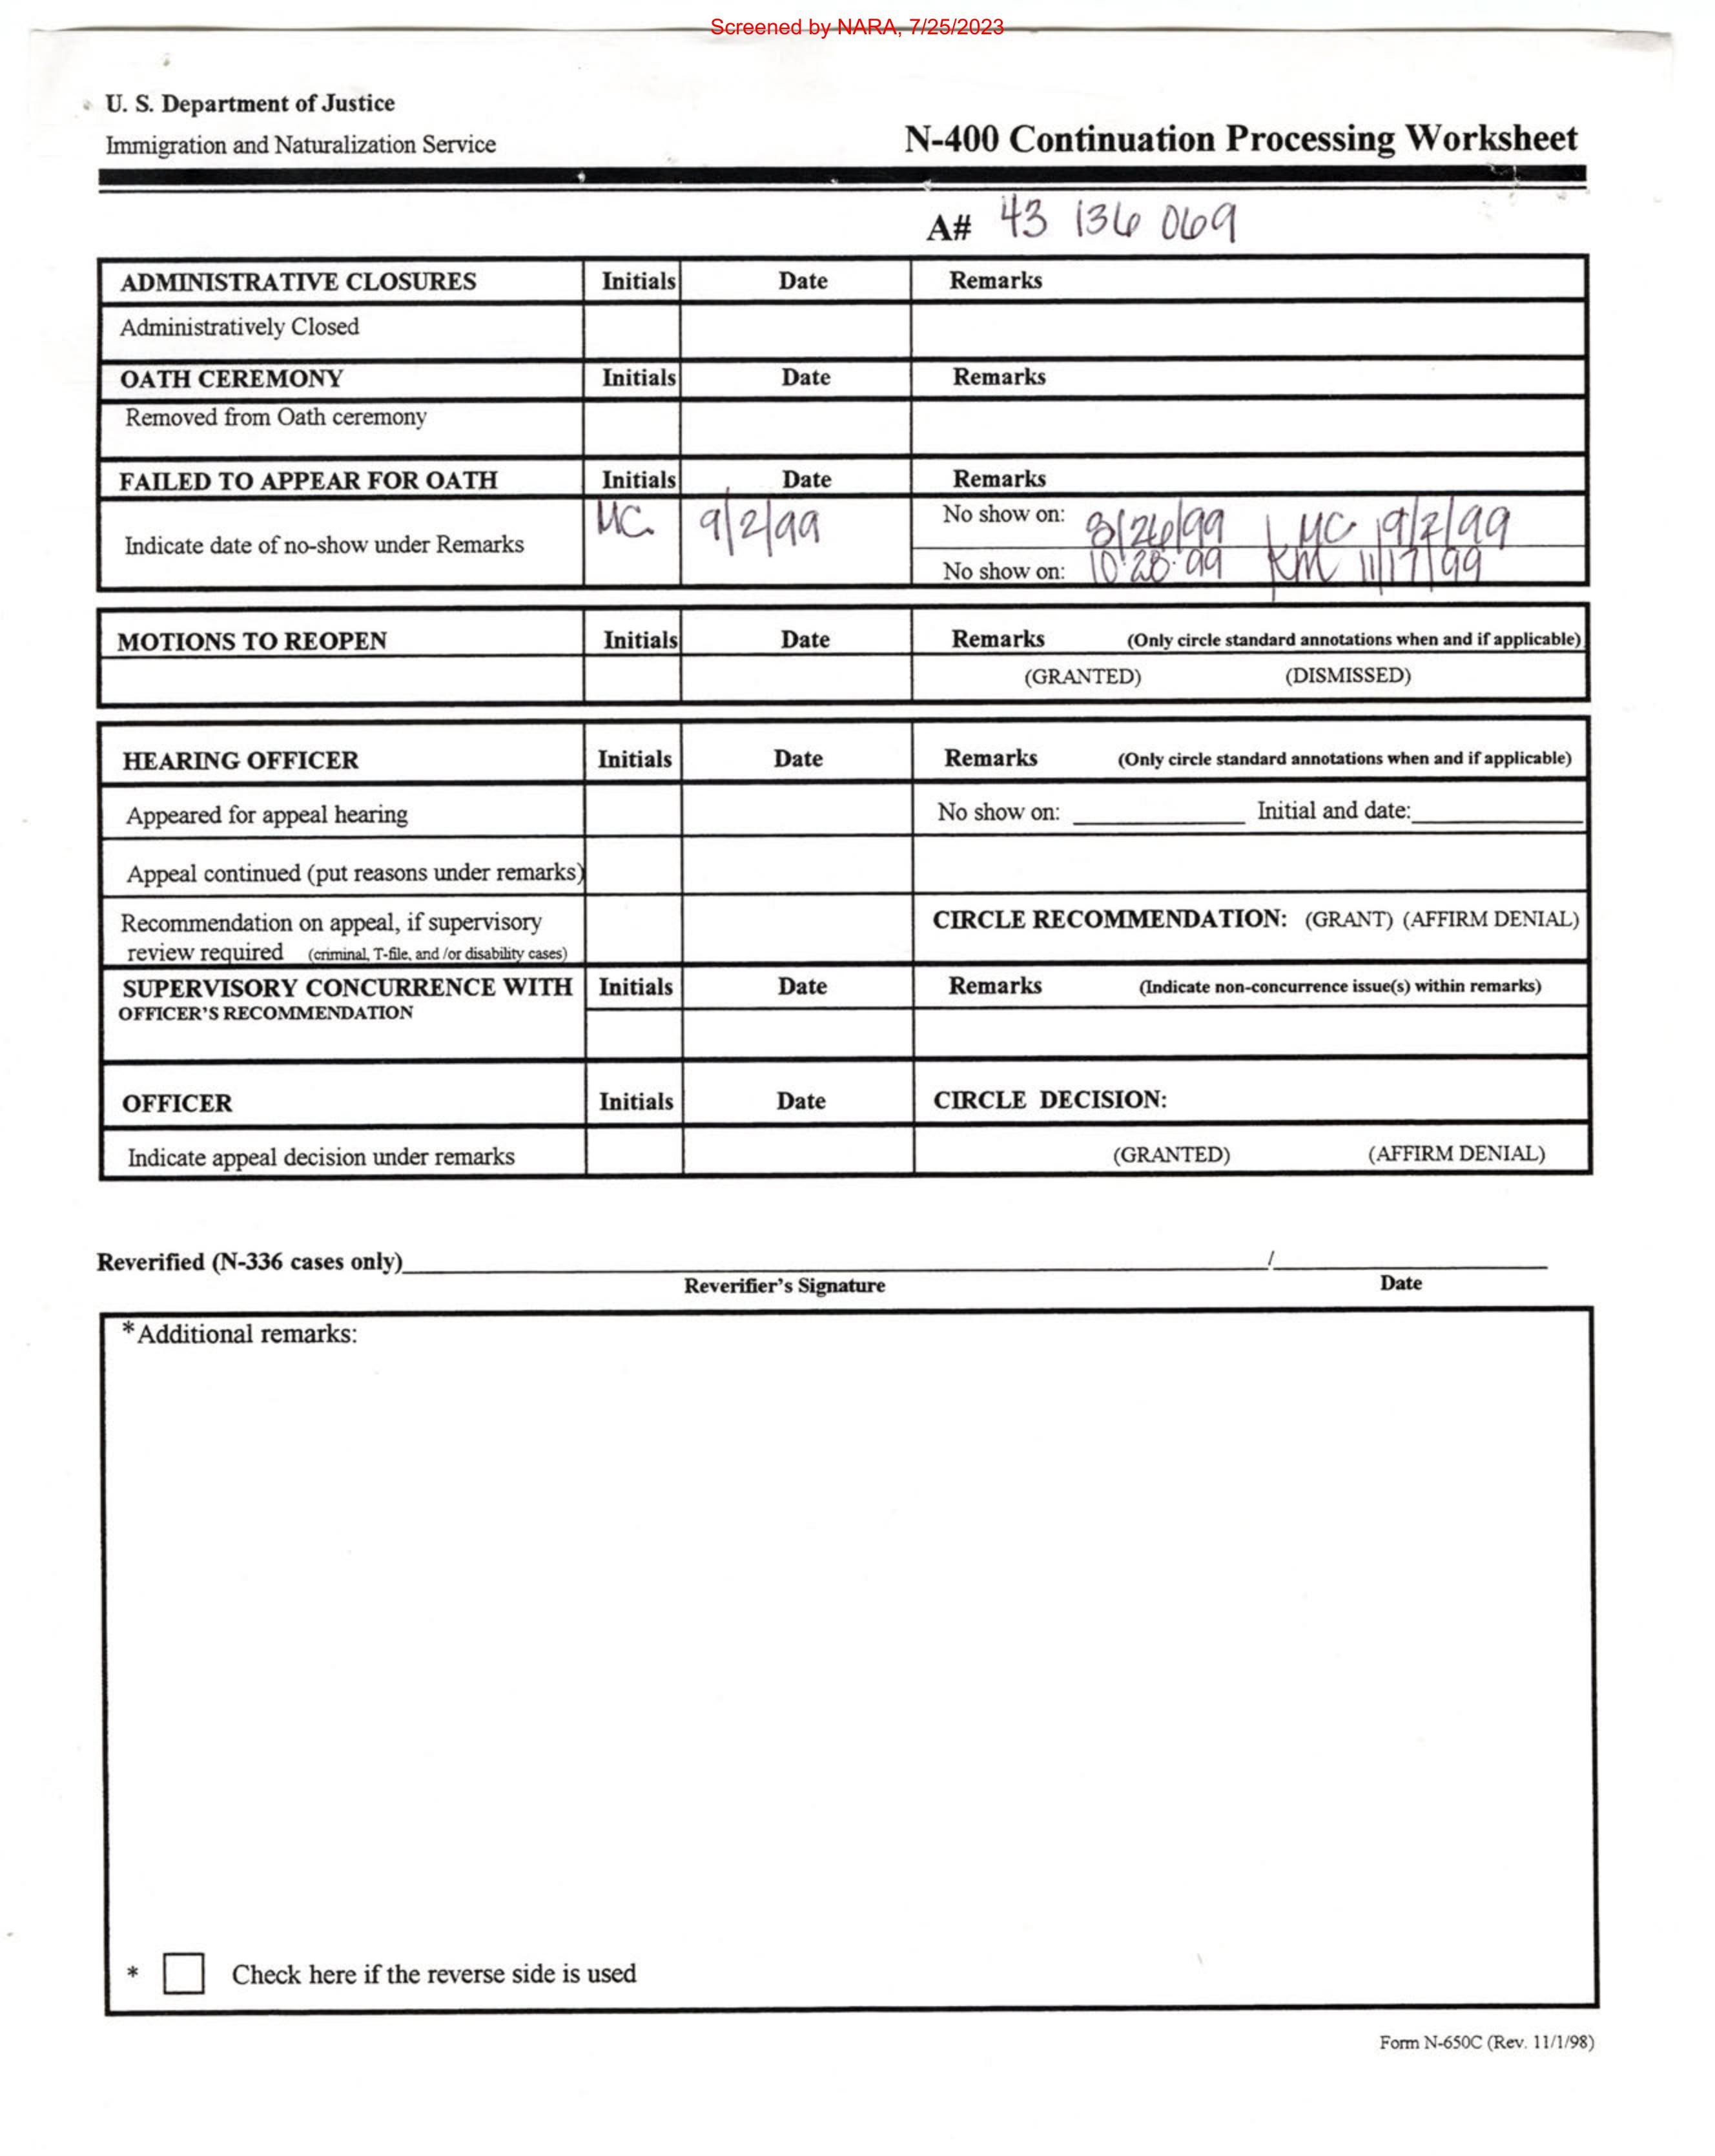 Screened by NARA, 7/25/2023
U. S. Department of Justice
Immigration and Naturalization Service
N-400 Continuation Processing Worksheet
A# 43 136 069
ADMINISTRATIVE CLOSURES Initials Date Remarks
Administratively Closed
OATH CEREMONY Initials Date Remarks
Removed from Oath ceremony
FAILED TO APPEAR FOR OATH Initials Date Remarks
Indicate date of no-show under Remarks MC. 9/2/99
No show on: 8/26/99 MC 9/2/99
No show on: 10.28.99 KM 11/17/99
MOTIONS TO REOPEN Initials Date Remarks (Only circle standard annotations when and if applicable)
(GRANTED) (DISMISSED)
HEARING OFFICER Initials Date Remarks (Only circle standard annotations when and if applicable)
Appeared for appeal hearing No show on: Initial and date:
Appeal continued (put reasons under remarks)
Recommendation on appeal, if supervisory CIRCLE RECOMMENDATION: (GRANT) (AFFIRM DENIAL)
review required (criminal, T-file, and /or disability cases)
SUPERVISORY CONCURRENCE WITH Initials Date Remarks (Indicate non-concurrence issue(s) within remarks)
OFFICER'S RECOMMENDATION
OFFICER Initials Date CIRCLE DECISION:
Indicate appeal decision under remarks (GRANTED) (AFFIRM DENIAL)
Reverified (N-336 cases only) /
Reverifier's Signature Date
*Additional remarks:
* Check here if the reverse side is used
Form N-650C (Rev. 11/1/98)